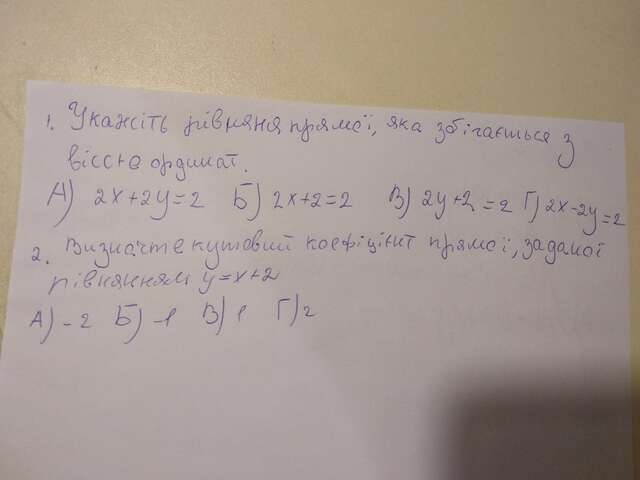 1. Укажіть рівняня прямої, яка збігається з
віссю ординат.
А) 2x+2y=2 Б) 2x+2=2 В) 2y+2=2 Г) 2x-2y=2
2. Визначте кутовий коефіцієнт прямої, заданої
рівнянням y=x+2
А) -2 Б) -1 В) 1 Г) 2